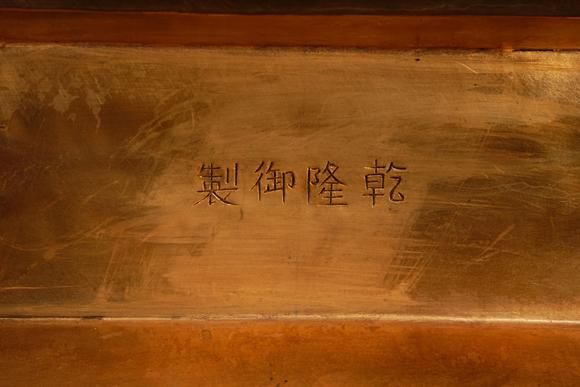 乾隆御製